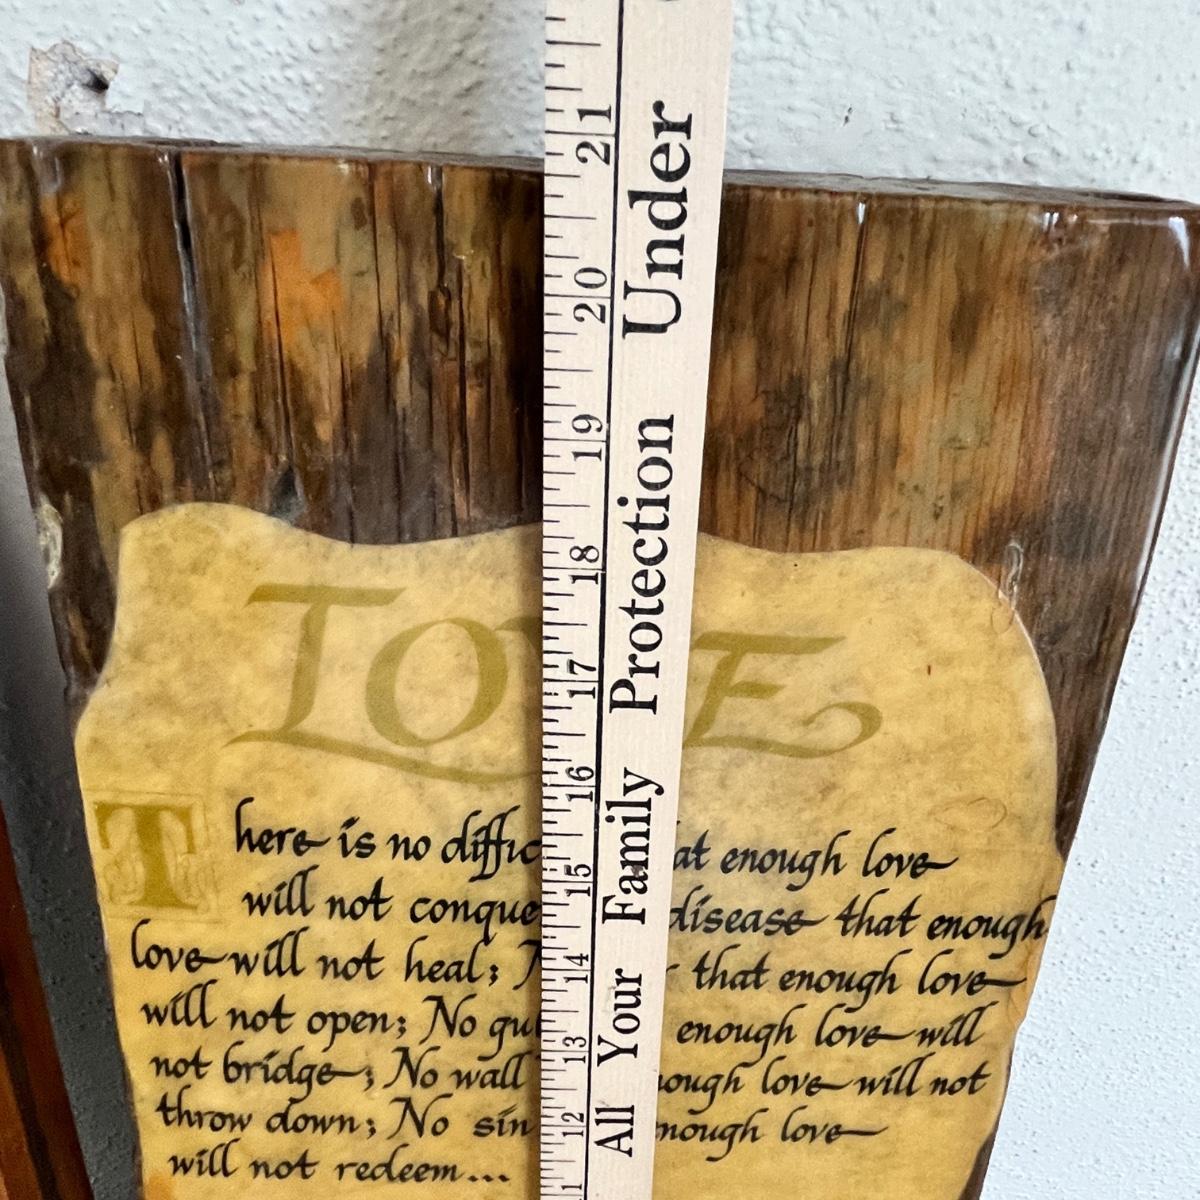 LO E
There is no diffic at enough love
will not conque disease that enough
love will not heal; that enough love
will not open; No gu enough love will
not bridge; No wall ough love will not
throw down; No sin nough love
will not redeem...
All Your Family Protection Under
12 13 14 15 16 17 18 19 20 21